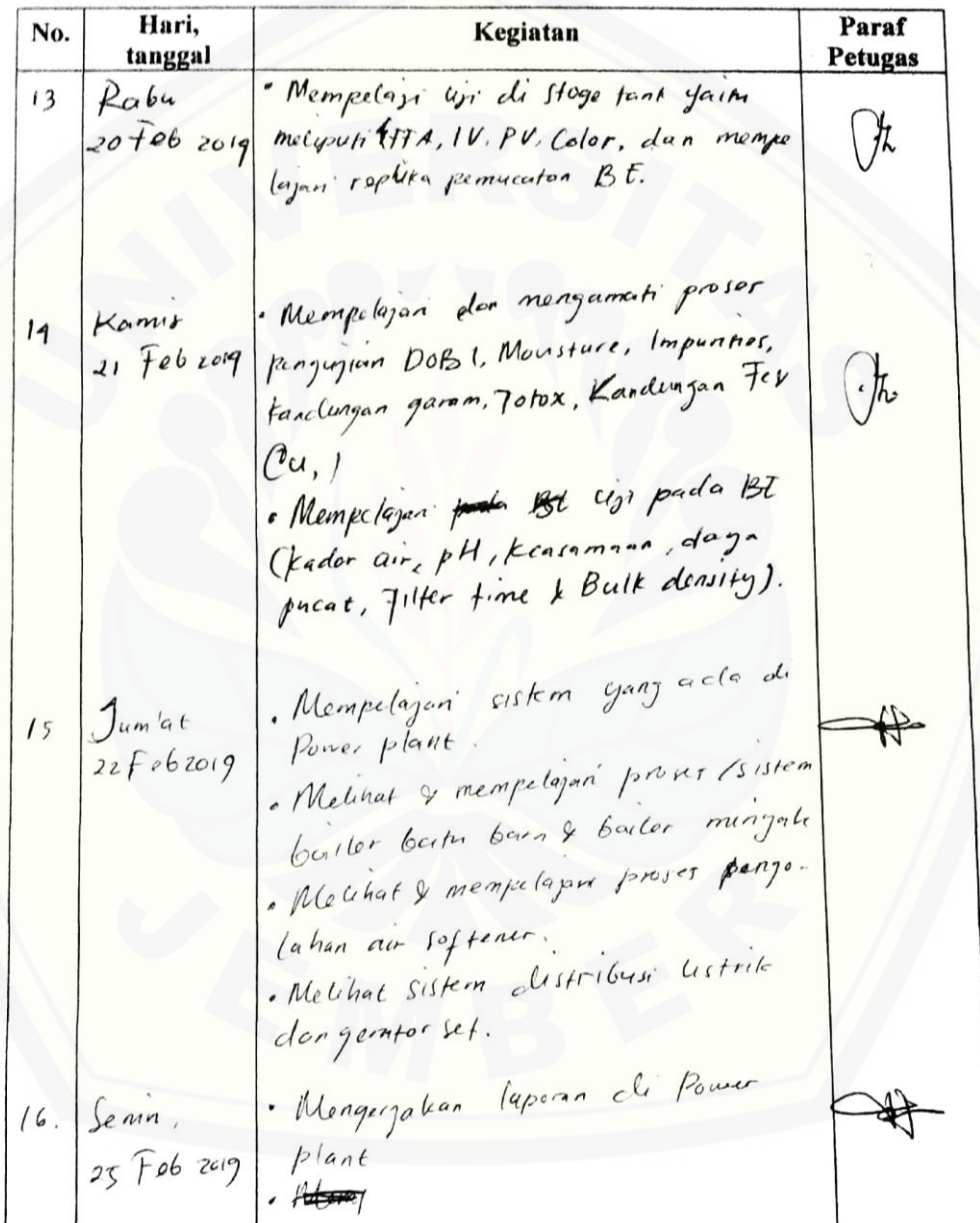 No. Hari, tanggal Kegiatan Paraf Petugas
13 Rabu • Mempelajari uji di Stoge tank yaitu
20 Feb 2019 meliputi FFA, IV, PV, Color, dan mempe
lajari replika pemucatan BE.
14 Kamis • Mempelajari dan mengamati proses
21 Feb 2019 pengujian DOBI, Mousture, Impurities,
kandungan garam, Totox, Kandungan Fe &
Cu,
• Mempelajari uji pada BE
(kadar air, pH, keasamaan, daya
pucat, Filter time & Bulk density).
15 Jum'at • Mempelajari sistem yang ada di
22 Feb 2019 Power plant.
• Melihat & mempelajari proses/sistem
boiler batu bara & boiler minyak
• Melihat & mempelajari proses pengo-
lahan air softener.
• Melihat sistem distribusi listrik
dan gerator set.
16. Senin, • Mengerjakan laporan di Power
25 Feb 2019 plant
UNIVERSITAS
JEMBER